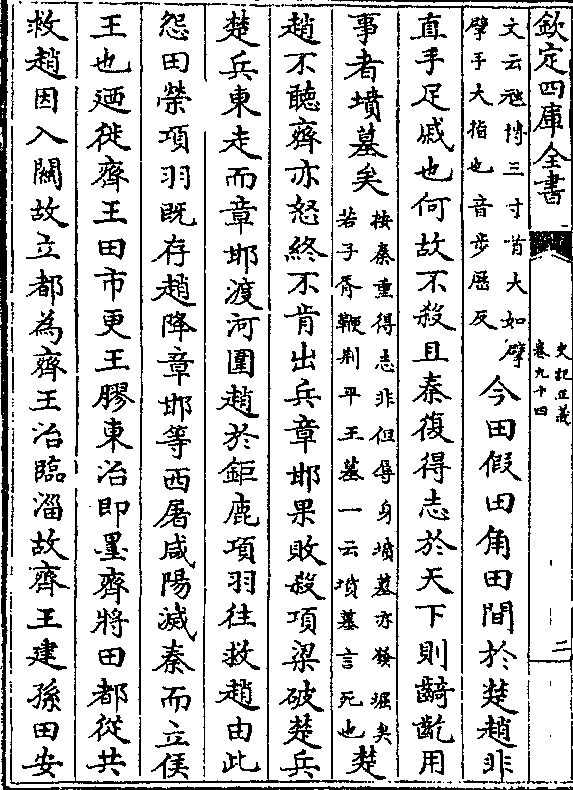 欽定四庫全書
史記正義
卷九十四
二
文云虺博三寸首大如擘
擘手大指也音步歷反
今田假田角田間於楚趙非
直手足戚也何故不殺且秦復得志於天下則齮齕用
事者墳墓矣
按秦重得志非但辱身墳墓亦發掘矣
若子胥鞭荆平王墓一云墳墓言死也
楚
趙不聽齊亦怒終不肯出兵章邯果敗殺項梁破楚兵
楚兵東走而章邯渡河圍趙於鉅鹿項羽往救趙由此
怨田榮項羽既存趙降章邯等西屠咸陽滅秦而立侯
王也廼徙齊王田市更王膠東治即墨齊將田都從共
救趙因入關故立都為齊王治臨淄故齊王建孫田安